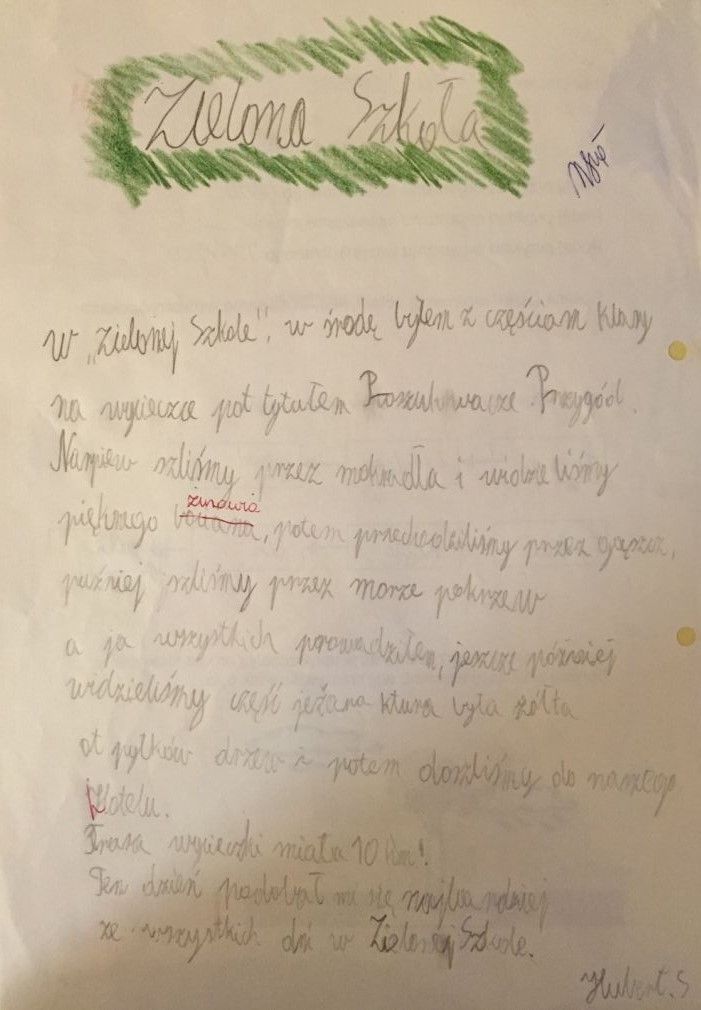 Zielona Szkoła
W „Zielonej Szkole”, w środę byłem z częściam klasy
na wycieczce pot tytułem Poszukiwacze Przygód.
Najpiew szliśmy przez mokradła i widzieliśmy
żurawia
pięknego bociana, potem przechodziliśmy przez gąszcz,
puźniej szliśmy przez morze pokrzew
a ja wszystkich prowadziłem, jeszcze później
widzieliśmy część jeziora ktura była żółta
ot pyłków drzew i potem doszliśmy do naszego
Hotelu.
Trasa wycieczki miała 10 km!
Ten dzień podobał mi się najbardziej
ze wszystkich dni w Zielonej Szkole.
Hubert.S